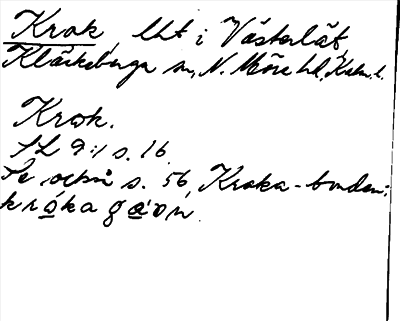 Krok, lht i Västerlät,
Kläckeberga sn, N. Möre hd, Kalm. l.
Krok.
SL 9:1 s. 16.
Se också s. 56, Kroka-bonden:
króka gǻon.